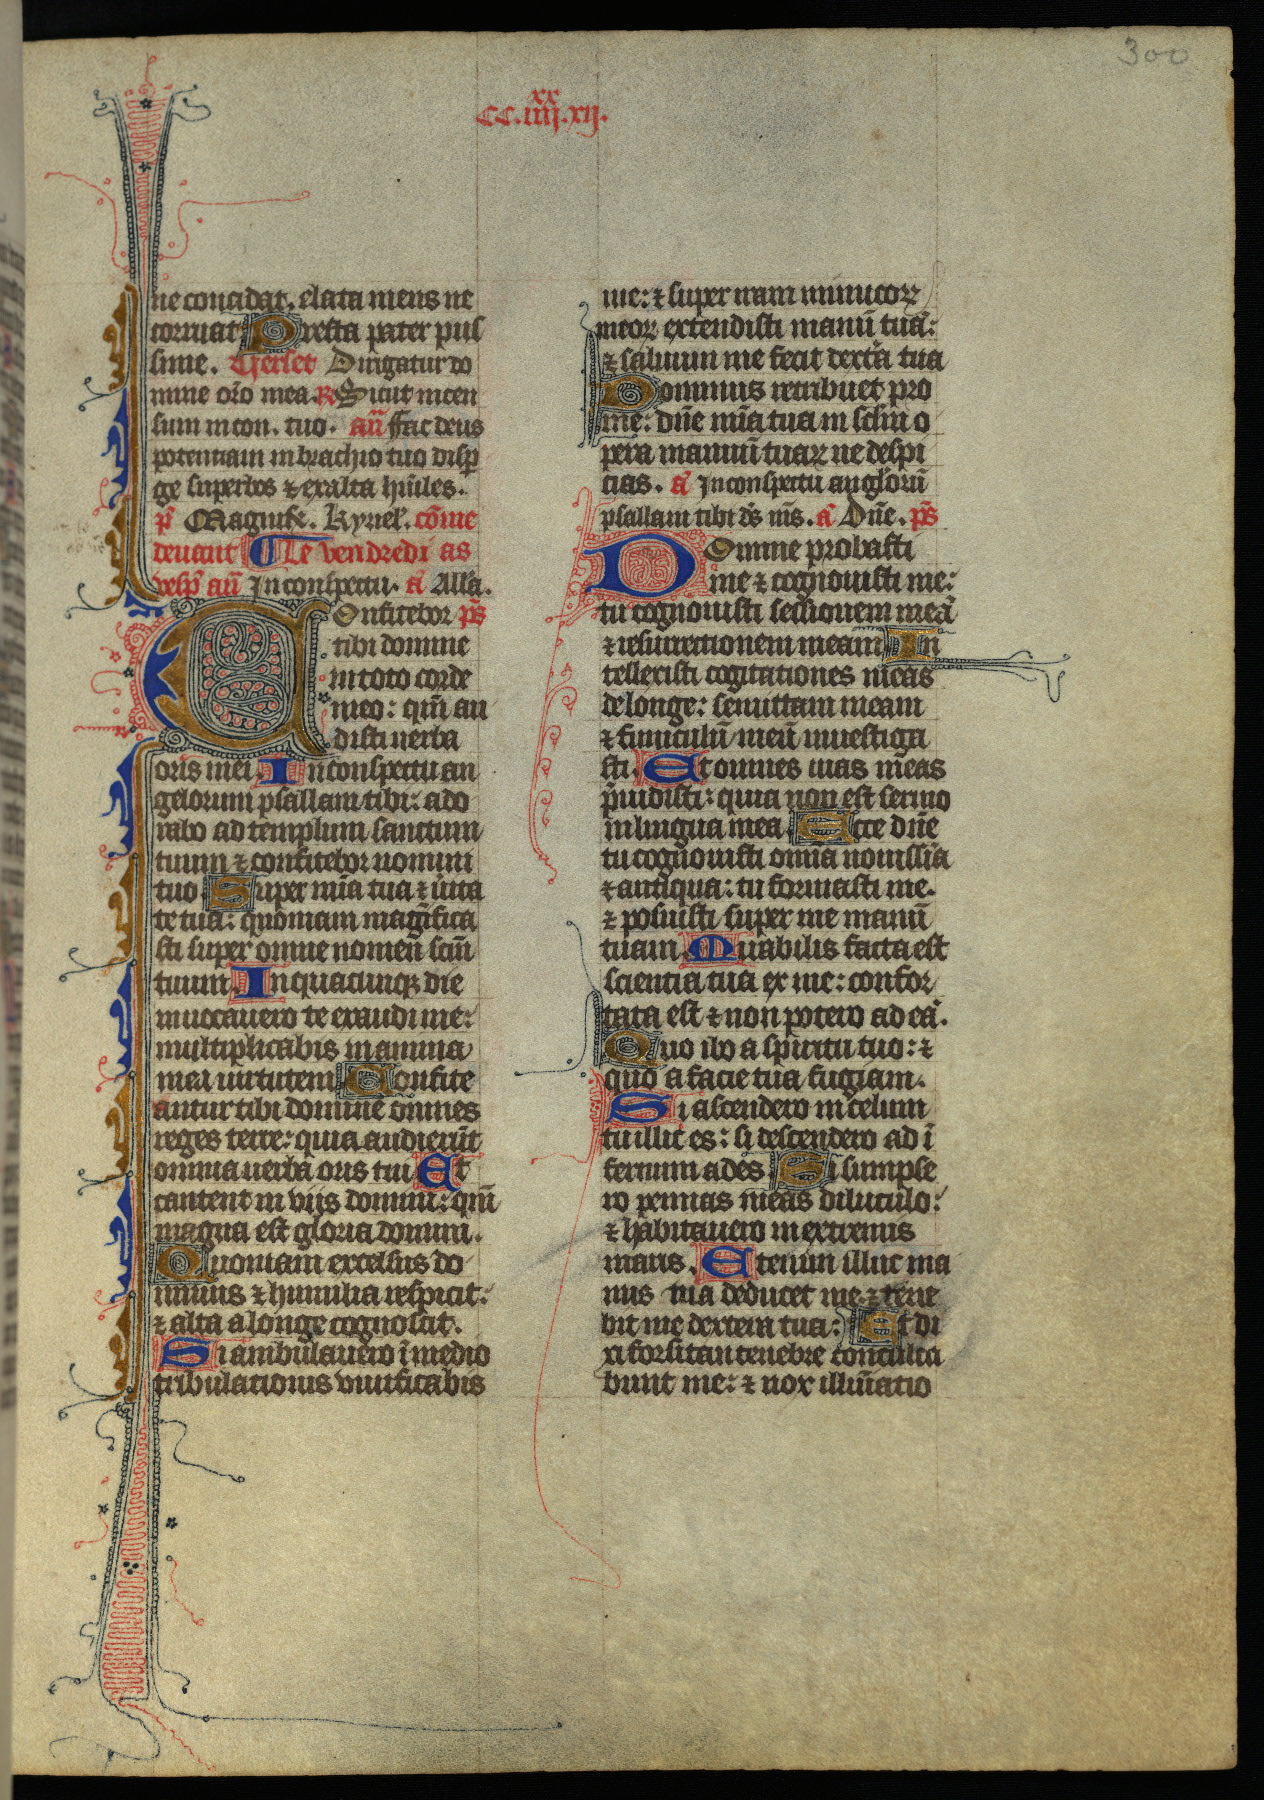 300
xx
CC.iiij.xij.
ne concidat. elata mens ne
corruat Presta pater piis
sime. Verset Dirigatur do
mine or̄o mea R Sicut incen
sum in con. tuo. an̄ Fac deus
potentiam in brachio tuo disp̄
ge superbos ⁊ exalta hūiles.
p̄ Magnific̄. Kyriel̄. cōme
deuant Le vendredi as
vesp̄ an̄ In conspectu. a̅ All'a.
Confitebor p̄s
tibi domine
in toto corde
meo: qm̄ au
disti uerba
oris mei. In conspectu an
gelorum psallam tibi: ado
rabo ad templum sanctum
tuum ⁊ confitebor nomini
tuo. Super mīa tua ⁊ uita
te tua: quoniam magnifica
sti super omne nomen̄ scm̄
tuum. In quacunq; die
inuocauero te exaudi me:
multiplicabis in anima
mea uirtutem. Confite
antur tibi domine omnes
reges terre: quia audierūt
omnia uerba oris tui Et
cantent in viis domini: qm̄
magna est gloria domini.
Quoniam excelsus do
minus ⁊ humilia respicit:
⁊ alta a longe cognoscit.
Si ambulauero ī medio
tribulationis viuificabis
me: ⁊ super iram inimicoꝝ
meoꝝ extendisti manū tuā:
⁊ saluum me fecit dext'a tua
Dominus retribuet pro
me: dn̄e mīa tua in sclm̄ o
pera manuū tuaꝝ ne despi
cias. a̅ In conspectu anglorū
psallam tibi ds̄ ms̄. a̅ Dn̄e. p̄s
Domine probasti
me ⁊ cognouisti me:
tu cognouisti sessionem meā
⁊ resurrectionem meam In
tellexisti cogitationes meas
de longe: semittam meam
⁊ funiculū meū inuestiga
sti. Et omnes uias meas
p̄uidisti: quia non est sermo
in lingua mea Ecce dn̄e
tu cognouisti omīa nouissīa
⁊ antiqua: tu formasti me.
⁊ posuisti super me manū
tuam. Mirabilis facta est
scientia tua ex me: confor
tata est ⁊ non potero ad eā.
Quo ibo a spiritu tuo: ⁊
quo a facie tua fugiam.
Si ascendero in celum
tu illic es: si descendero ad ī
fernum ades Si sumpse
ro pennas meas diluculo:
⁊ habitauero in extremis
maris. Etenim illuc ma
nus tua deducet me: ⁊ tene
bit me dextera tua: Et di
xi forsitan tenebre conculca
bunt me: ⁊ nox illuīatio